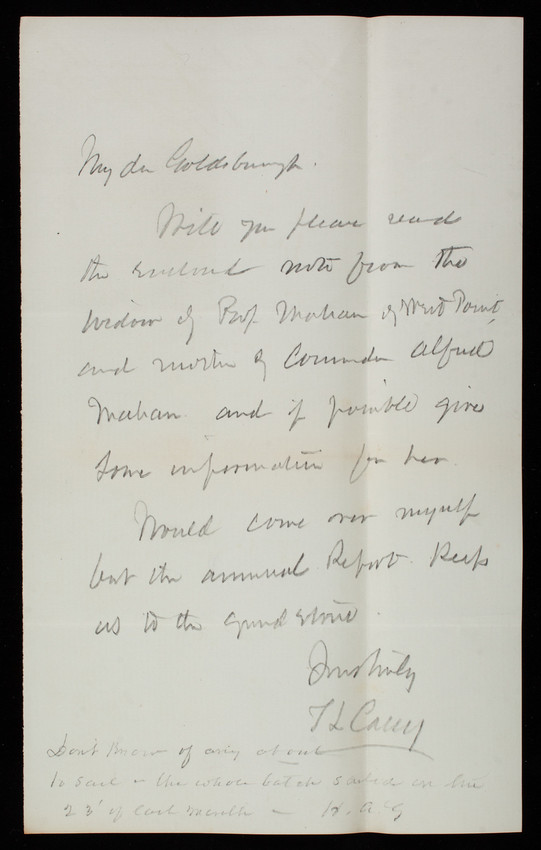 My dear Goldsborough.
Will you please read
the enclosed note from the
widow of Prof Mahan of West Point,
and mother of Commander Alfred
Mahan and if possible give
some information for her.
Would come over myself
but the annual Report keeps
us to the grind stone.
Yours truly
T L Casey
Don't know of any about
to sail – the whole batch sailed on the
23' of last month – H. A. G